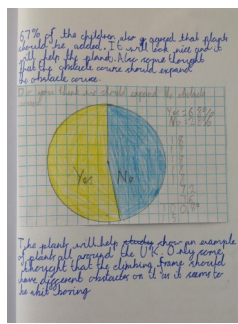 57% of the children also agreed that plants
should be added. It will look nice and it
will help the planet. Also some thought
that the obstacle course should expand
the obstacle course.
you think we should expand the obstacle
Yes
No
The plants will help show an example
of plants all around the U.K. Only some
thought that the climbing frame should
have different obstacles on it as it seems to
be boring